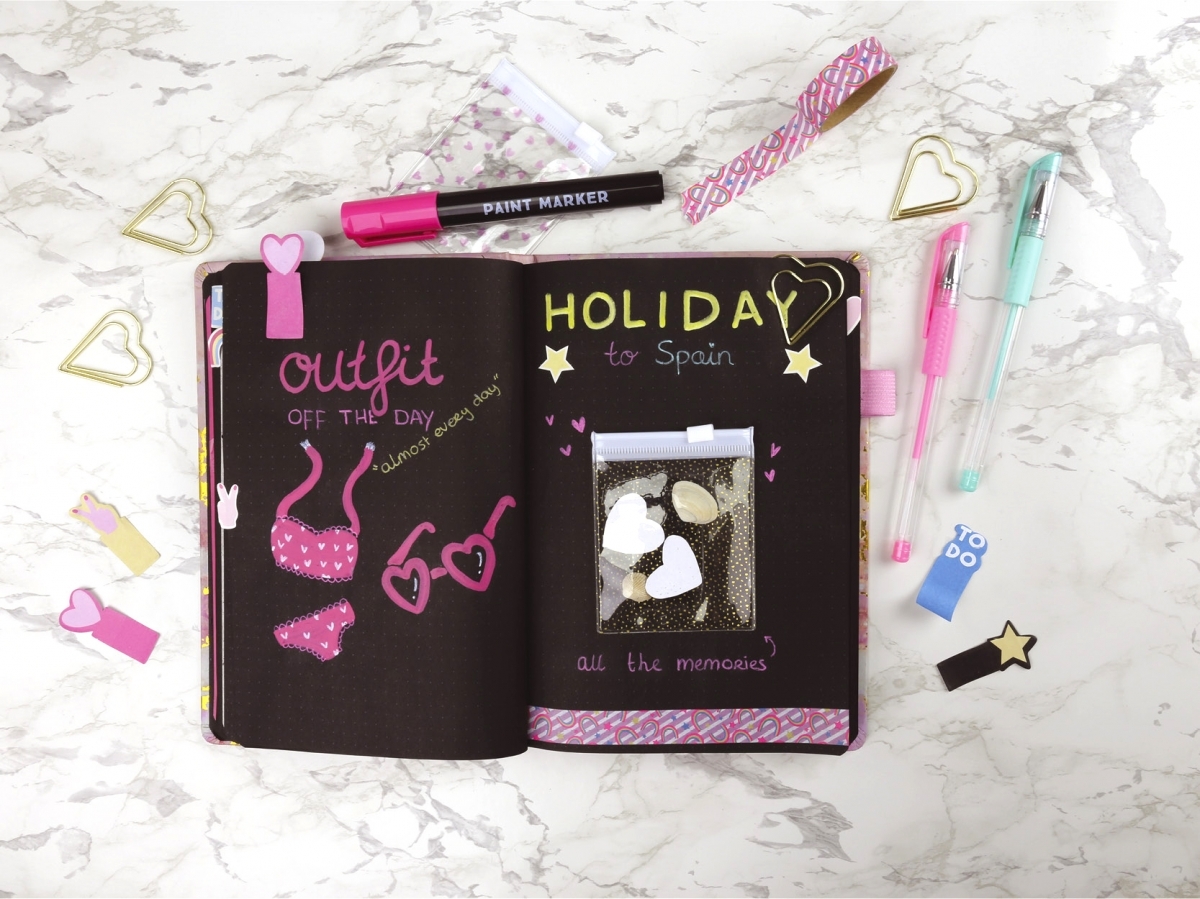 PAINT MARKER
outfit
OFF THE DAY
"almost every day"
HOLIDAY
to Spain
all the memories
TO
DO